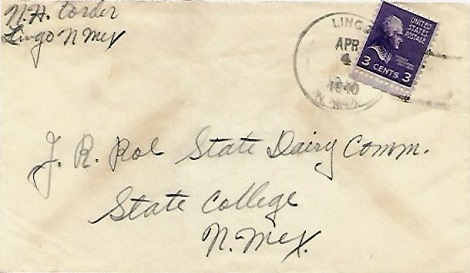 N.H. Corder
Lingo N Mex
LINGO
APR
4
1940
N. MEX.
UNITED
STATES
POSTAGE
3 CENTS 3
J. R. Pol State Dairy Comm.
State College
N. Mex.